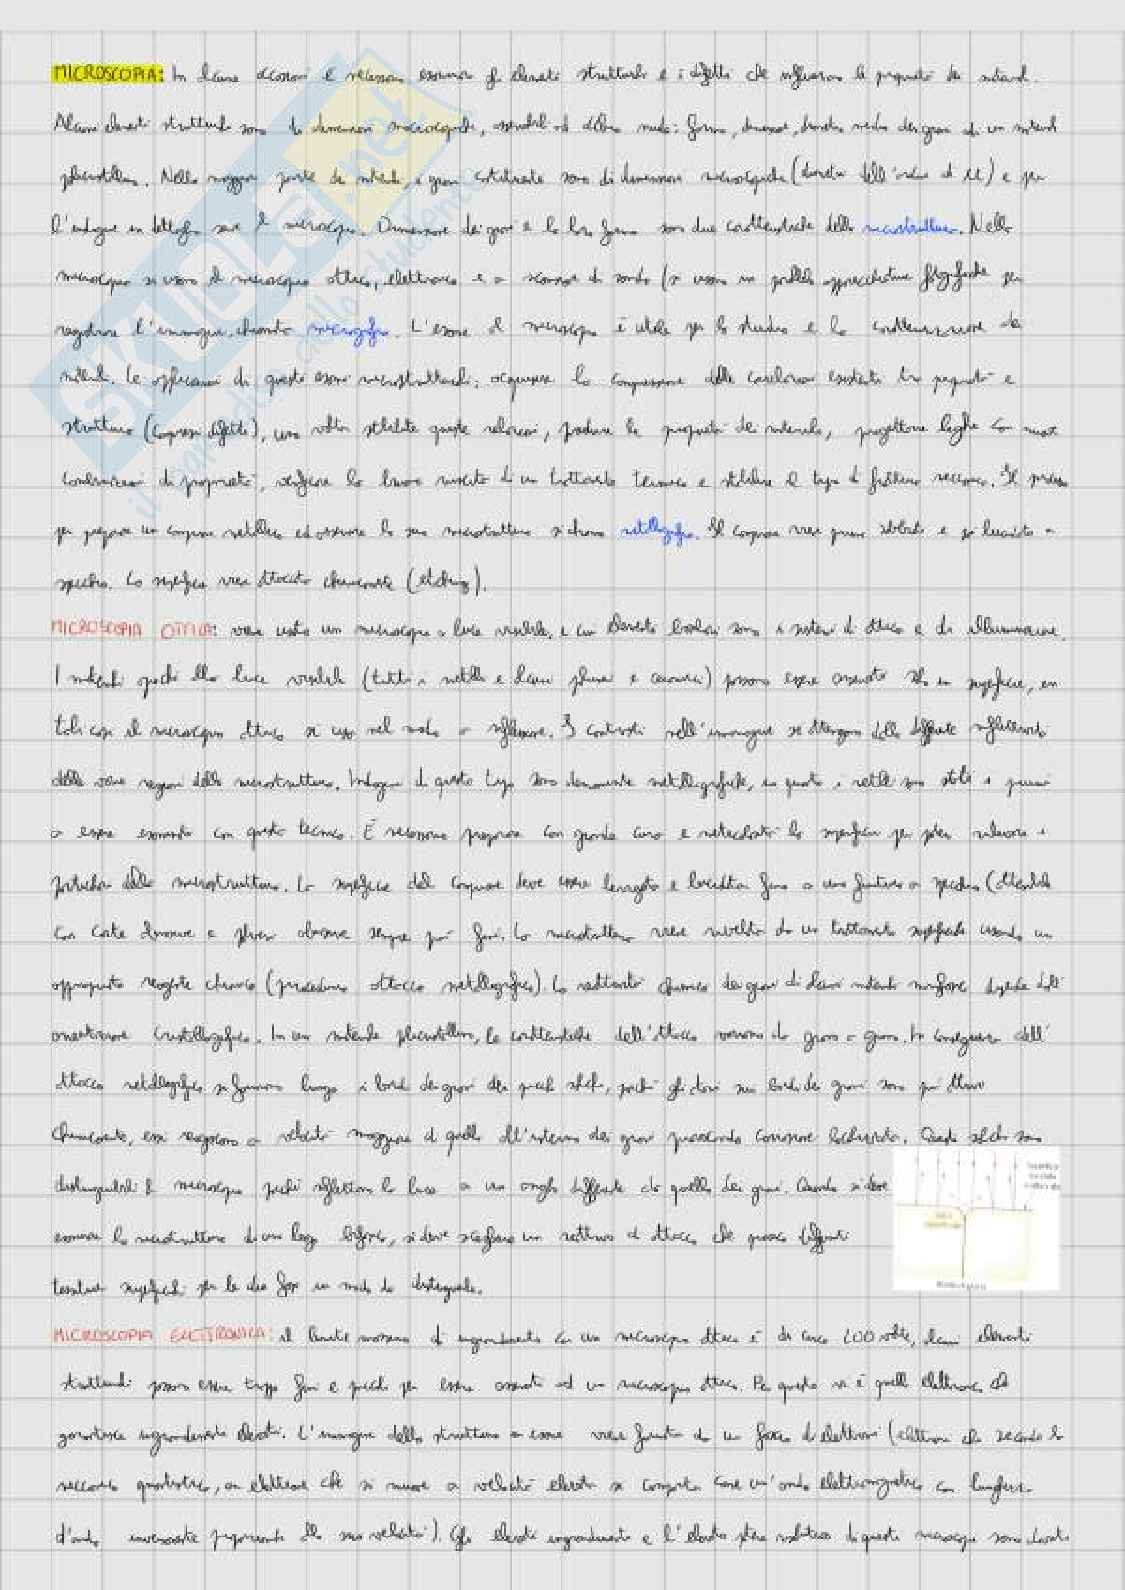 MICROSCOPIA: In alcune occasioni è necessario esaminare gli elementi strutturali e i difetti che influenzano le proprietà dei materiali.
Alcuni elementi strutturali sono di dimensioni macroscopiche, osservabili ad occhio nudo: forma, dimensione, diametro medio dei grani di un materiale
policristallino. Nella maggior parte dei materiali, i grani costituenti sono di dimensioni microscopiche (diametro dell'ordine di µ) e per
l'indagine in dettaglio serve il microscopio. Dimensione dei grani e la loro forma sono due caratteristiche della microstruttura. Nella
microscopia si usano il microscopio ottico, elettronico e a scansione di sonda (si usano in parallelo apparecchiature fotografiche per
registrare l'immagine, chiamata micrografia. L'esame al microscopio è utile per lo studio e la caratterizzazione dei
materiali. Le applicazioni di questi esami microstrutturali: acquisire la comprensione delle correlazioni esistenti tra proprietà e
struttura (compresi difetti), una volta stabilite queste relazioni, predire le proprietà dei materiali, progettare leghe con nuove
combinazioni di proprietà, verificare la buona riuscita di un trattamento termico e stabilire il tipo di frattura meccanica. Il processo
per preparare un campione metallico ed osservare la sua microstruttura si chiama metallografia. Il campione viene prima e poi lucidato a
specchio. La superficie viene attaccata chimicamente (etching).
MICROSCOPIA OTTICA: viene usato un microscopio a luce visibile, i cui elementi basilari sono i sistemi di ottica e di illuminazione.
I materiali opachi alla luce visibile (tutti i metalli e alcuni polimeri e ceramici) possono essere osservati solo in superficie, in
tali casi il microscopio ottico si usa nel modo a riflessione. I contrasti nell'immagine si ottengono dalla differente riflettività
delle varie regioni della microstruttura. Indagini di questo tipo sono denominate metallografiche, in quanto i metalli sono stati i primi
a essere esaminati con questa tecnica. È necessario preparare con grande cura e meticolosità la superficie per poter rilevare i
particolari della microstruttura. La superficie del campione deve essere levigata e lucidata fino a una finitura a specchio (ottenibile
con carte abrasive e polveri abrasive sempre più fini. La microstruttura viene rivelata da un trattamento superficiale usando un
appropriato reagente chimico (procedimento attacco metallografico). La reattività chimica dei grani di alcuni materiali monofasici dipende dall'
orientazione cristallografica. In un materiale policristallino, le caratteristiche dell'attacco variano da grano a grano. In conseguenza dell'
attacco metallografico si formano lungo i bordi dei grani dei piccoli solchi, poiché gli atomi sui bordi dei grani sono più attivi
chimicamente, essi reagiscono a velocità maggiore di quelli all'interno dei grani provocando corrosione localizzata. Questi solchi sono
distinguibili al microscopio perché riflettono la luce a un angolo differente da quello dei grani. Quando si deve
esaminare la microstruttura di una lega bifasica, si deve scegliere un reattivo di attacco che provoca differenti
tessiture superficiali per le due fasi in modo da distinguerle.
MICROSCOPIA ELETTRONICA: il limite massimo di ingrandimento con un microscopio ottico è di circa volte, alcuni elementi
strutturali possono essere troppo fini e piccoli per essere osservati ad un microscopio ottico. Per questo vi è quello elettronico che
garantisce ingrandimenti elevati. L'immagine della struttura in esame viene fornita da un fascio di elettroni (elettroni che secondo la
meccanica quantistica, un elettrone che si muove a velocità elevata si comporta come un'onda elettromagnetica con lunghezza
d'onda inversamente proporzionale alla sua velocità). Gli elevati ingrandimenti e l'elevato potere risolutivo di questi microscopi sono dovuti